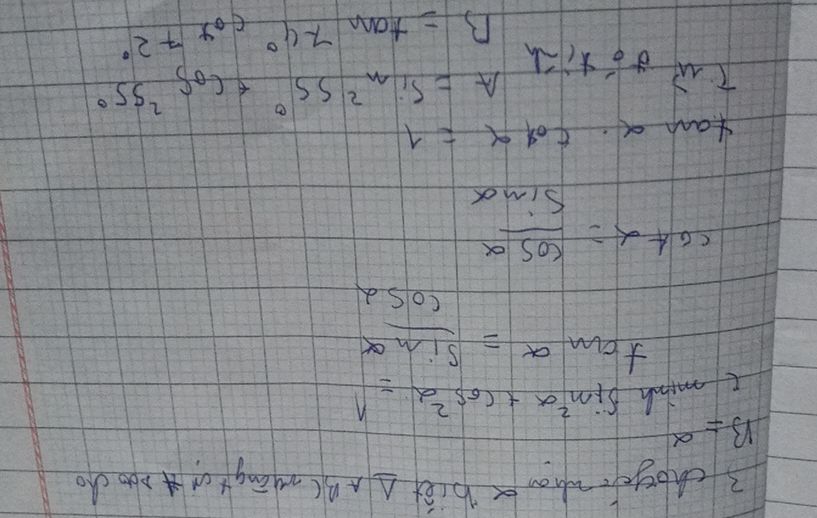 3 cho góc nhọn α biết Δ ABC vuông tại A sao cho
B = α
c minh sin²α + cos²α = 1
tan α = sin α / cos α
cot α = cos α / sin α
tan α . cot α = 1
Từ đó tính
A = sin²55° + cos²55°
B = tan 74° cot 72°